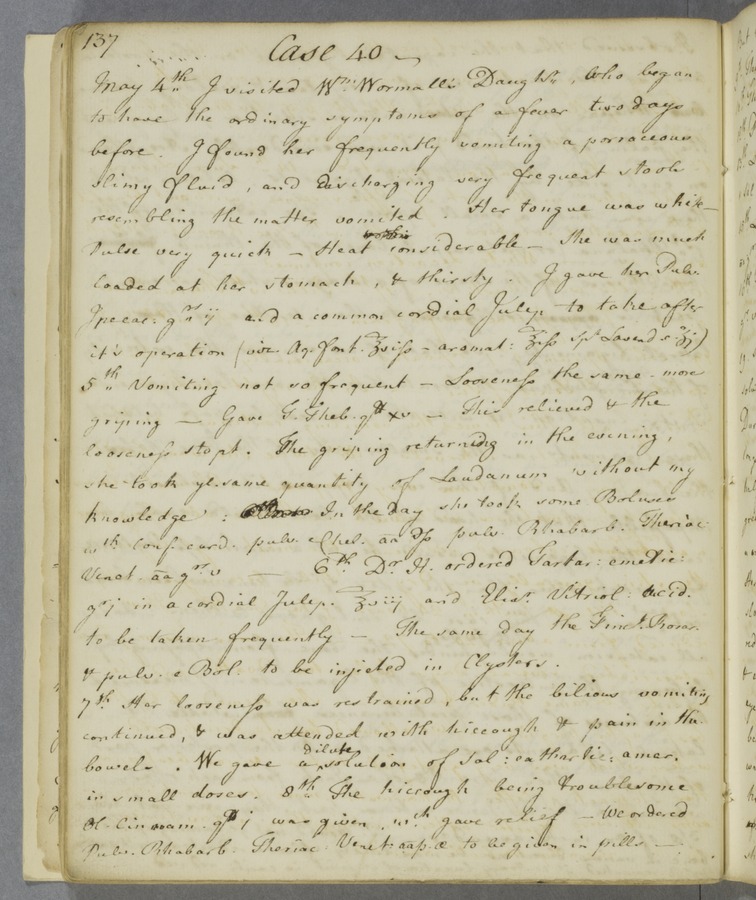 137
Case 40
May 4th I visited Wm. Wormall's Daughtr, who began
to have the ordinary symptoms of a fever two days
before. I found her frequently vomiting a porraceous
slimy fluid, and discharging very frequent stools
resembling the matter vomited. Her tongue was white
Pulse very quick – Heat considerable – She was much
loaded at her stomach, & thirsty. I gave her Pulv.
Ipecac: grs ij and a common cordial Julep to take after
it's operation (viz. Aq. font. ℥viſs – aromat: ℥ſs Spt Lavend s: ʒij)
5th Vomiting not so frequent – Looseneſs the same – more
griping – Gave T. Theb. gtt xv – This relieved & the
looseneſs stopt. The griping returning in the evening,
she took ye. same quantity of Laudanum without my
knowledge: In the day she took some Boluses
wth Conf. card. pulv. e Chel. aa ℈ſs pulv. Rhabarb. Theriac
Venet. āā grs v — 6th. Dr. H. ordered Tartar: emetic:
gr j in a cordial Julep. ℥viij and Elixr. Vitriol: acid.
to be taken frequently – The same day the Tinct. Rosar.
& pulv. e Bol: to be injected in Clysters.
7th Her looseneſs was restrained, but the bilious vomiting
continued, & was attended with hiccough & pain in the
bowels. We gave a dilute solution of Sal: cathartic: amar.
in small doses. 8th The hiccough being troublesome
Ol. cinnam. gtt j was given, wch gave relief – We ordered
Pulv. Rhabarb. Theriac. Venet: aa p. æ to be given in pills —